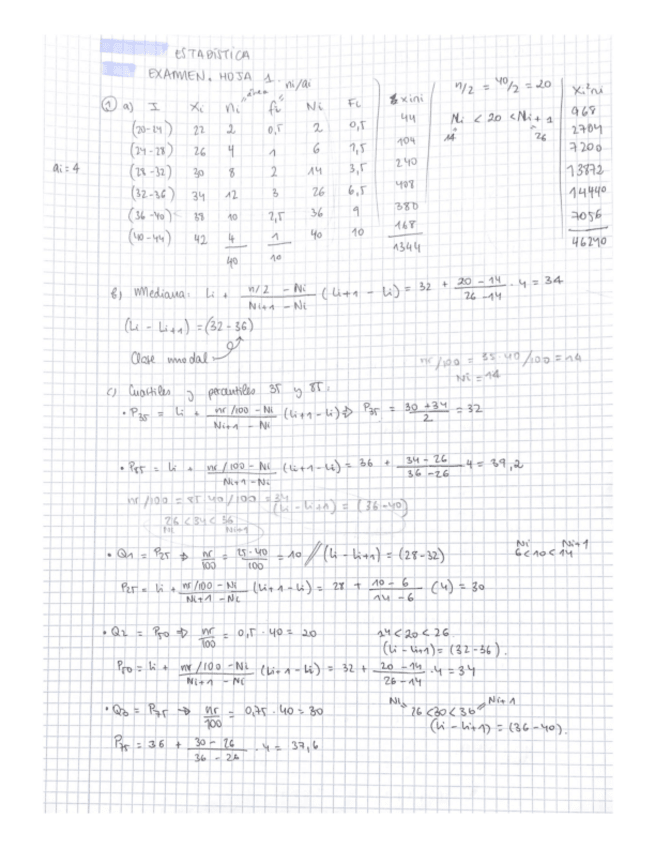 ESTADÍSTICA
EXAMEN. HOJA 1
"área" ni/ai
n/2 = 40/2 = 20
① a) I Xi ni fi Ni Fi Σxini Xi²ni
(20-24) 22 2 0,5 2 0,5 44 968
Ni < 20 < Ni+1
14 26
(24-28) 26 4 1 6 1,5 104 2704
ai = 4
(28-32) 30 8 2 14 3,5 240 7200
(32-36) 34 12 3 26 6,5 408 13872
(36-40) 38 10 2,5 36 9 380 14440
(40-44) 42 4 1 40 10 168 7056
40 10 1344 46240
b) Mediana: Li + n/2 - Ni / Ni+1 - Ni (Li+1 - Li) = 32 + 20-14 / 26-14 · 4 = 34
(Li - Li+1) = (32-36)
Clase modal
nr/100 = 35·40/100 = 14
Ni = 14
c) Cuartiles y percentiles 35 y 85.
• P35 = Li + nr/100 - Ni / Ni+1 - Ni (Li+1-Li) ⇒ P35 = 30+34 / 2 = 32
• P85 = Li + nr/100 - Ni / Ni+1-Ni (Li+1-Li) = 36 + 34-26 / 36-26 · 4 = 39,2
nr/100 = 85·40/100 = 34
(Li - Li+1) = (36-40)
26 < 34 < 36
Ni Ni+1
• Q1 = P25 ⇒ nr/100 = 25·40/100 = 10 // (Li - Li+1) = (28-32)
Ni Ni+1
6 < 10 < 14
P25 = Li + nr/100 - Ni / Ni+1 - Ni (Li+1 - Li) = 28 + 10-6 / 14-6 (4) = 30
• Q2 = P50 ⇒ nr/100 = 0,5 · 40 = 20
14 < 20 < 26
(Li - Li+1) = (32-36).
P50 = Li + nr/100 - Ni / Ni+1 - Ni (Li+1 - Li) = 32 + 20-14 / 26-14 · 4 = 34
• Q3 = P75 ⇒ nr/100 = 0,75 · 40 = 30
Ni Ni+1
26 < 30 < 36
(Li - Li+1) = (36-40).
P75 = 36 + 30-26 / 36-26 · 4 = 37,6